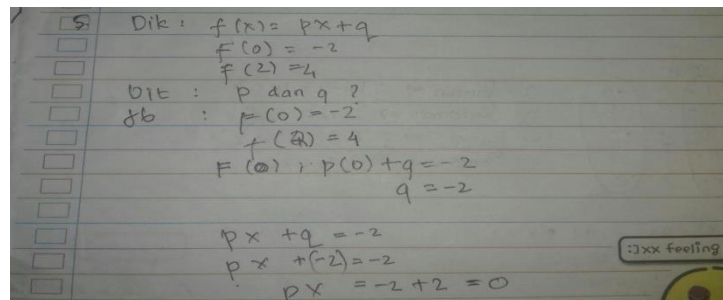 5. Dik : f(x) = px + q
F(0) = -2
f(2) = 4
Dit : p dan q ?
Jb : F(0) = -2
f(2) = 4
F(0) ; p(0) + q = -2
q = -2
px + q = -2
px + (-2) = -2
px = -2 + 2 = 0
:]xx feeling